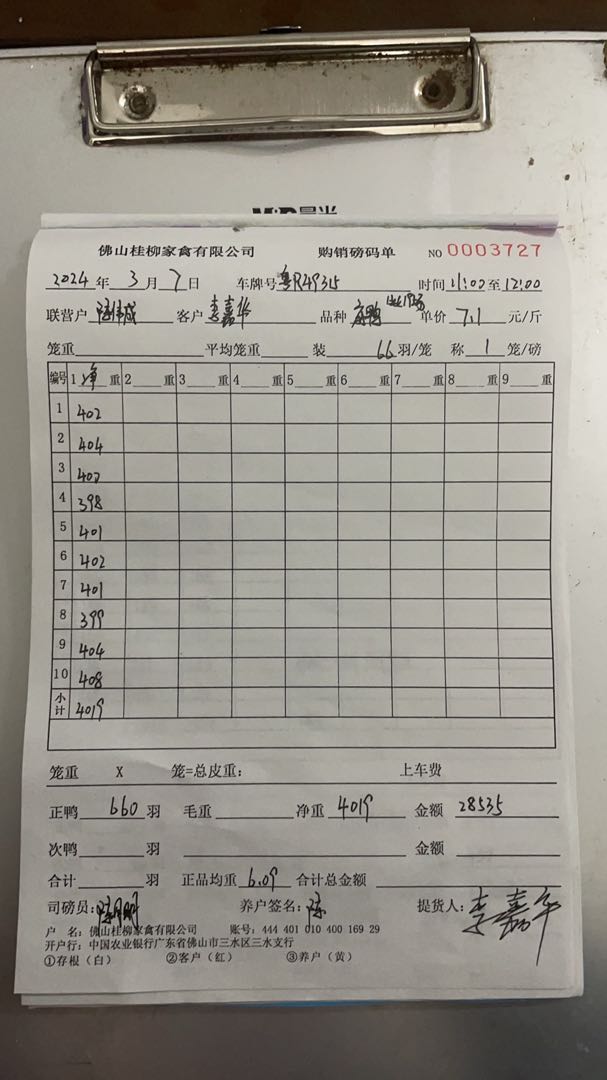 佛山桂柳家禽有限公司 购销磅码单 NO 0003727
2024年3月7日 车牌号粤R49315 时间11:00至12:00
联营户 客户李嘉华 品种 单价7.1元/斤
笼重 平均笼重 装66羽/笼 称1笼/磅
编号 1净重 2重 3重 4重 5重 6重 7重 8重 9重
1 402
2 404
3 402
4 398
5 401
6 402
7 401
8 399
9 404
10 408
小计 4019
笼重 X 笼=总皮重: 上车费
正鸭660羽 毛重 净重4019 金额28535
次鸭 羽 金额
合计 羽 正品均重6.09 合计总金额
司磅员: 养户签名:陈 提货人:李嘉华
户 名:佛山桂柳家禽有限公司 账号:444 401 010 400 169 29
开户行:中国农业银行广东省佛山市三水区三水支行
①存根(白) ②客户(红) ③养户(黄)